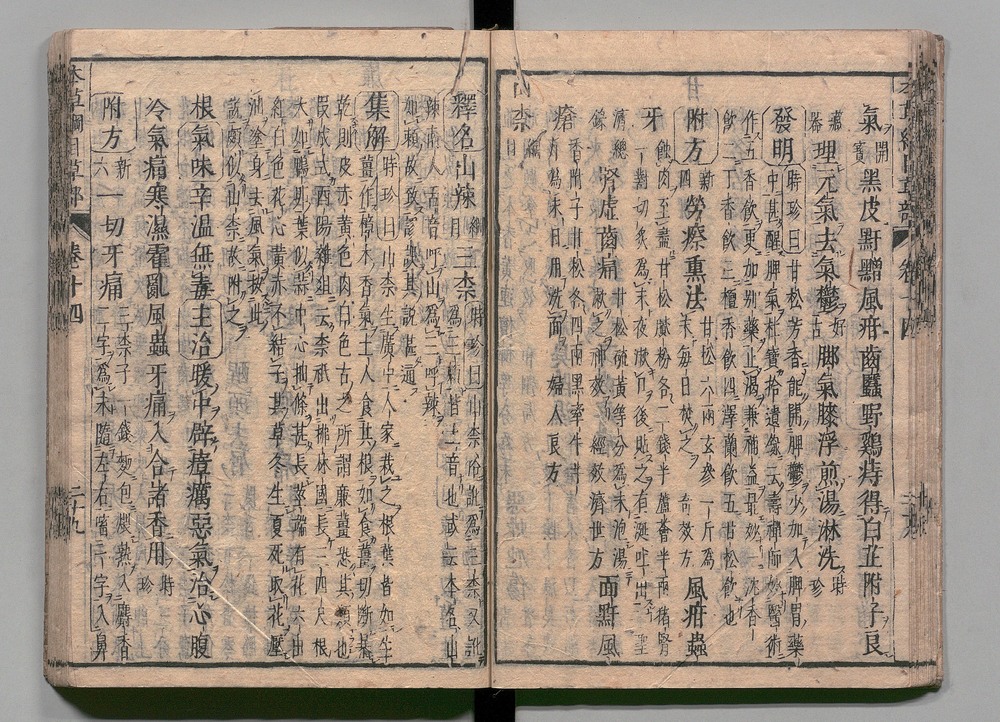 氣開寶黑皮䵟䵳風疳齒䘌野雞痔得白芷附子良
藏器理元氣去氣鬱好古脚氣膝浮煎湯淋洗時珍
發明時珍曰甘松芳香能開脾鬱少加入脾胃藥
中甚醒脾氣杜寶拾遺錄云壽禪師妙醫術
作五香飲更加別藥止渴兼補益最妙一沈香
飲二丁香飲三檀香飲四澤蘭飲五甘松飲也
附方新四勞瘵熏法甘松六兩玄參一斤為末每日焚之奇效方風疳蟲
牙蝕肉至盡甘松膩粉各二錢半蘆薈半兩豬腎
一對切炙為末夜漱口後貼之有涎吐出聖
濟總錄腎虛齒痛甘松硫黃等分為末泡湯漱之神效經效濟世方面䵟風
瘡香附子甘松各四兩黑牽牛半
斤為末日用洗面婦人良方
山柰
釋名山辣綱目三柰時珍曰山柰俗訛為三柰又訛
為三賴皆土音也或云本名山
辣南人舌音呼山為三呼辣
如賴故致謬誤其說甚通
集解時珍曰山柰生廣中人家栽之根葉皆如生
薑作樟木香氣土人食其根如食薑切斷暴
乾則皮赤黃色肉白色古之所謂廉薑恐其類也
段成式酉陽雜俎云柰祇出拂林國長三四尺根
大如鴨卵葉似蒜中心抽條甚長莖端有花六出
紅白色花心黃赤不結子其草冬生夏死取花壓
油塗身去風氣按此
說頗似山柰故附之
根氣味辛溫無毒主治暖中辟瘴癘惡氣治心腹
冷氣痛寒濕霍亂風蟲牙痛入合諸香用時珍
附方新六一切牙痛三柰子一錢麵包煨熟入麝香
二字為末隨左右㗜一字入鼻
本草綱目草部
卷十四
二十九